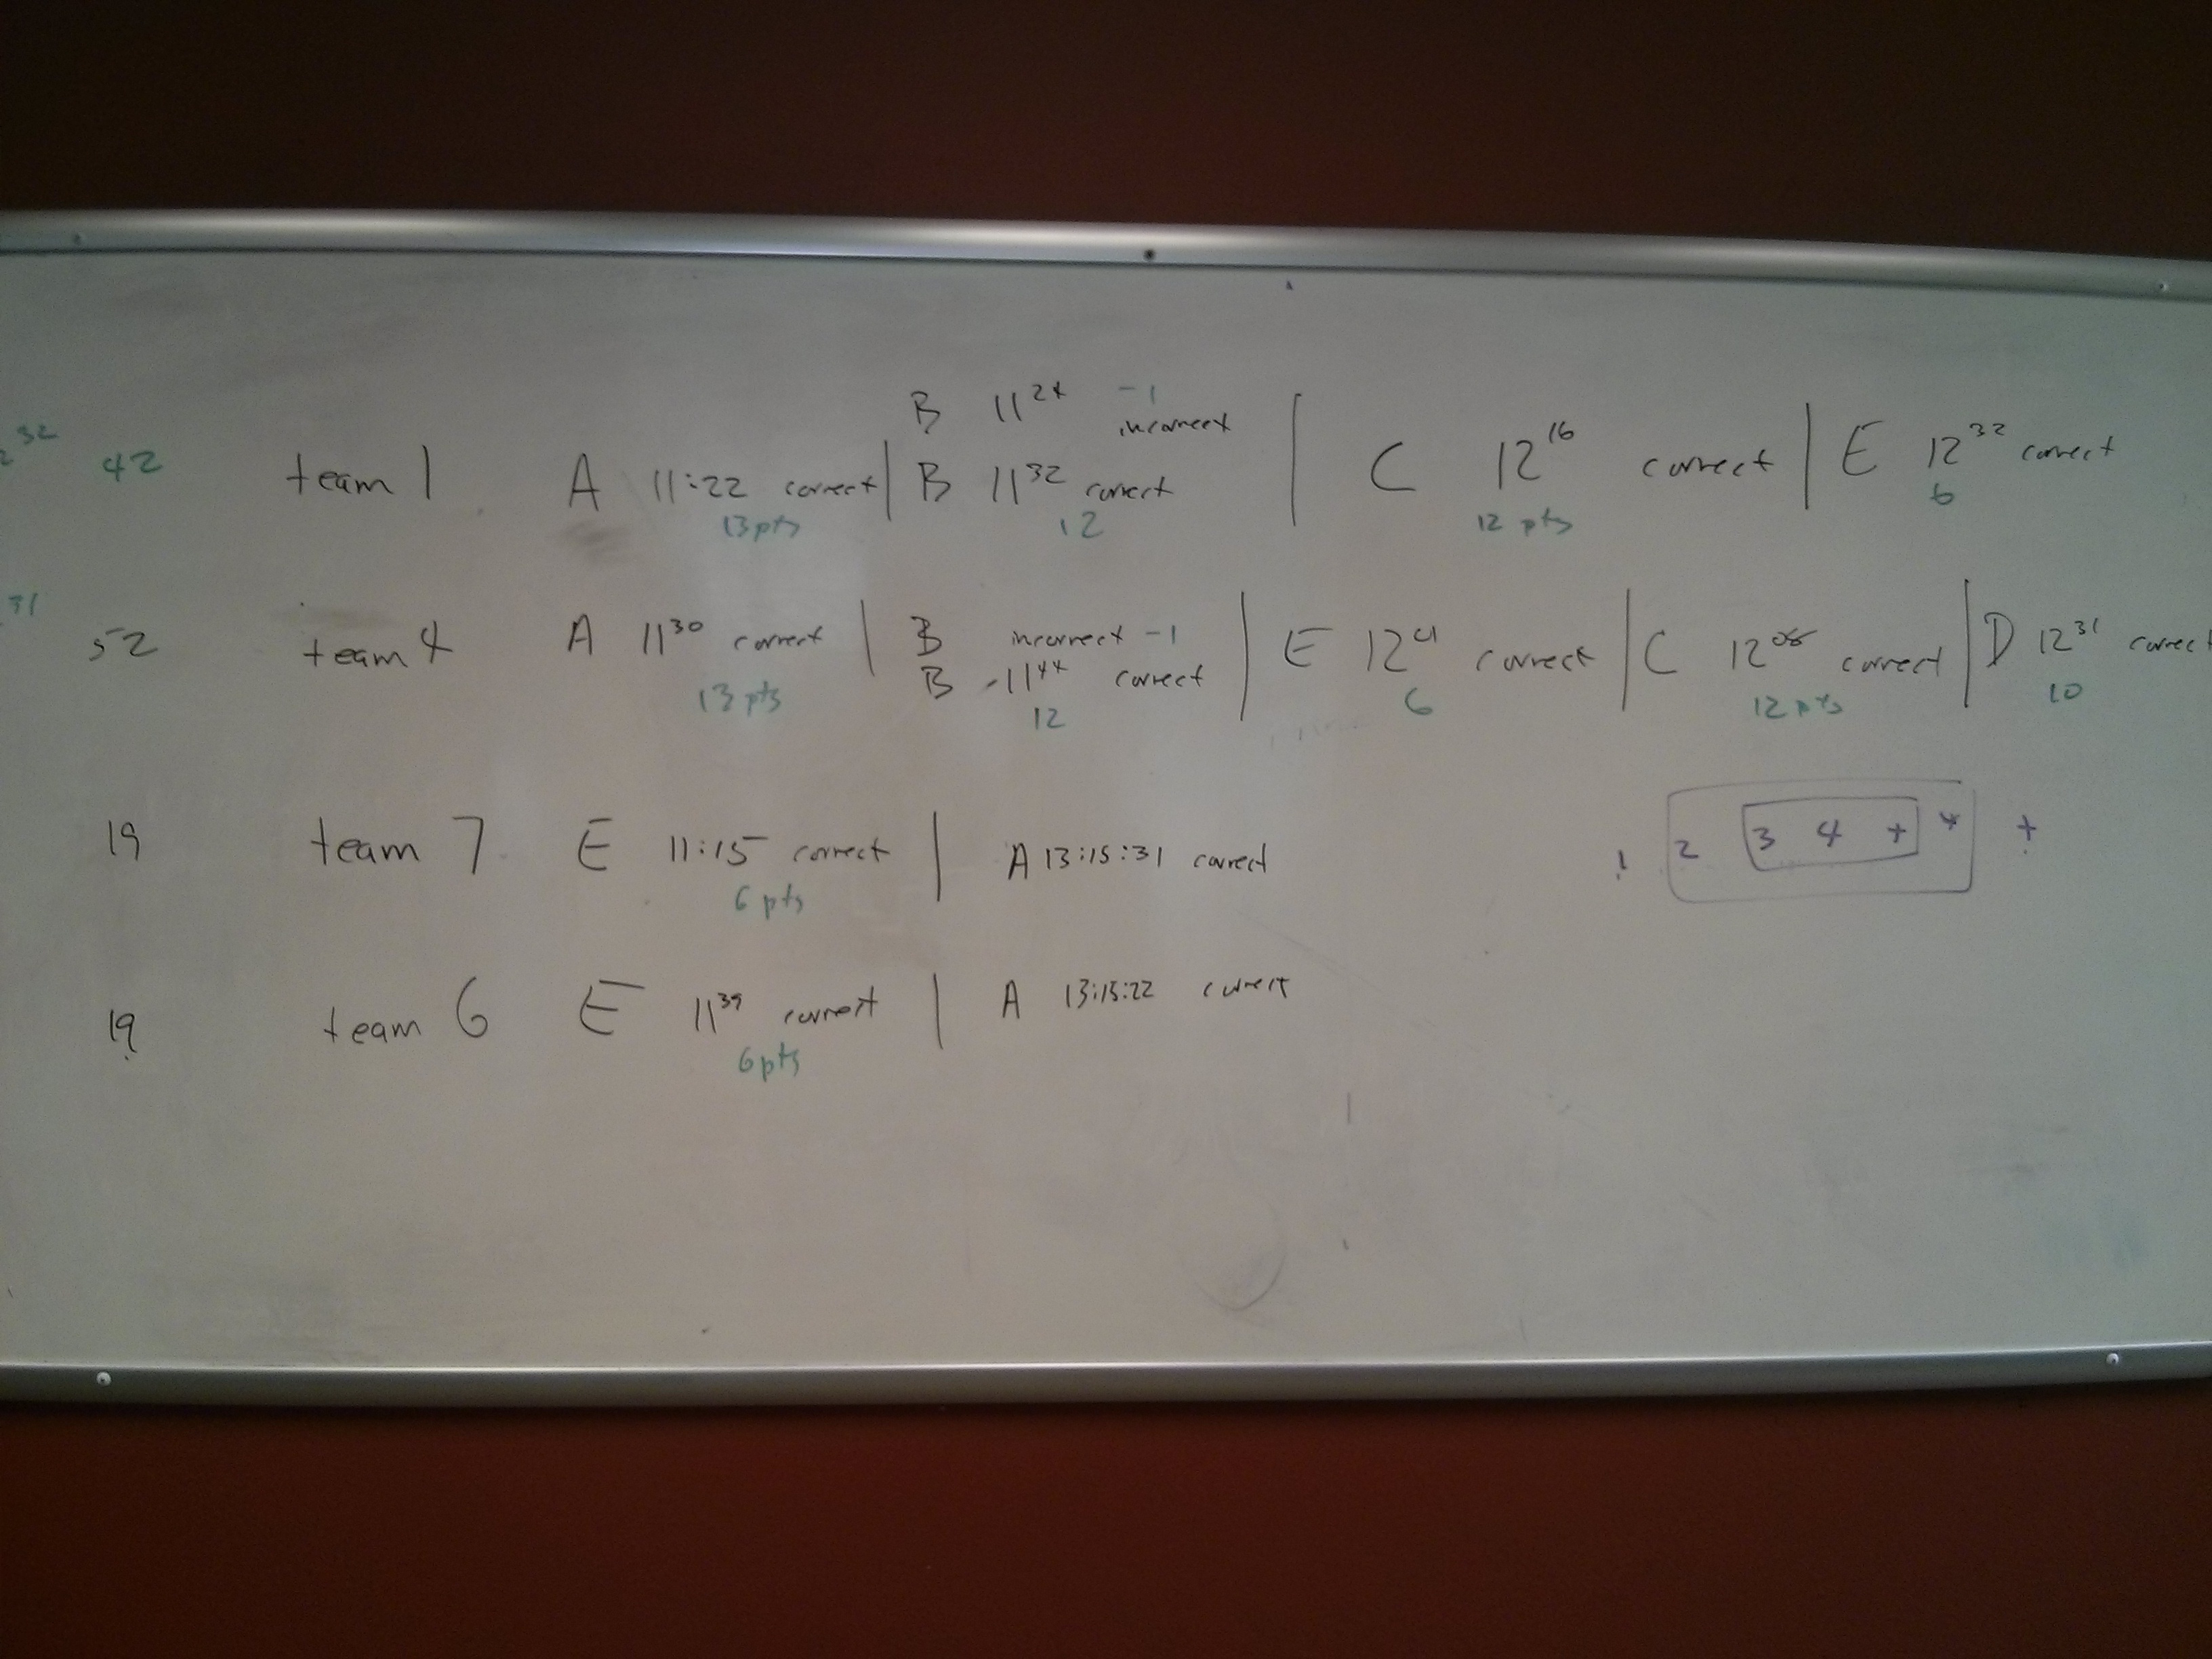 32 42 team 1 A 11:22 correct | B 11 24 -1 incorrect | C 12 16 correct | E 12 32 correct
B 11 32 correct
13 pts 12 12 pts 6
31 52 team 4 A 11 30 correct | B incorrect -1 | E 12 01 correct | C 12 05 correct | D 12 31 correct
B 11 44 correct
13 pts 12 6 12 pts 10
19 team 7 E 11:15 correct | A 13:15:31 correct
6 pts
1 2 3 4 + * +
19 team 6 E 11 39 correct | A 13:15:22 correct
6 pts